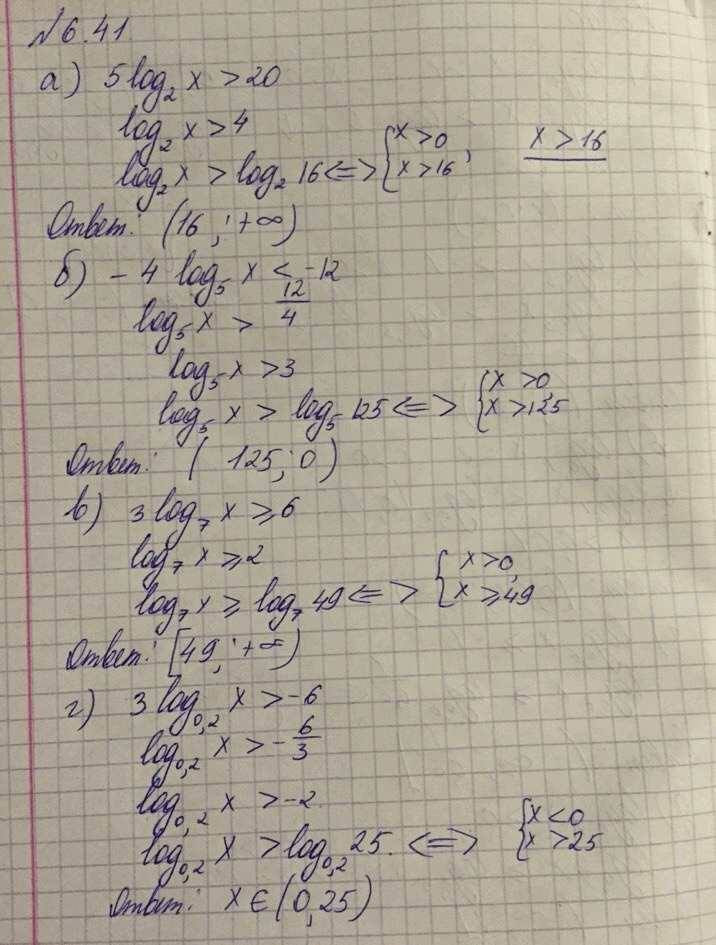 №6.41.
а) 5 log₂ x > 20
log₂ x > 4
log₂ x > log₂ 16 <=> { x > 0, x > 16 x > 16
Ответ: (16 ; +∞)
б) - 4 log₅ x < -12
log₅ x > 12/4
log₅ x > 3
log₅ x > log₅ 125 <=> { x > 0, x > 125
Ответ: ( 125 ; 0 )
в) 3 log₇ x ⩾ 6
log₇ x ⩾ 2
log₇ x ⩾ log₇ 49 <=> { x > 0, x ⩾ 49
Ответ: [49 ; +∞)
г) 3 log₀,₂ x > -6
log₀,₂ x > - 6/3
log₀,₂ x > -2
log₀,₂ x > log₀,₂ 25. <=> { x < 0 x > 25
Ответ: x ∈ (0, 25)